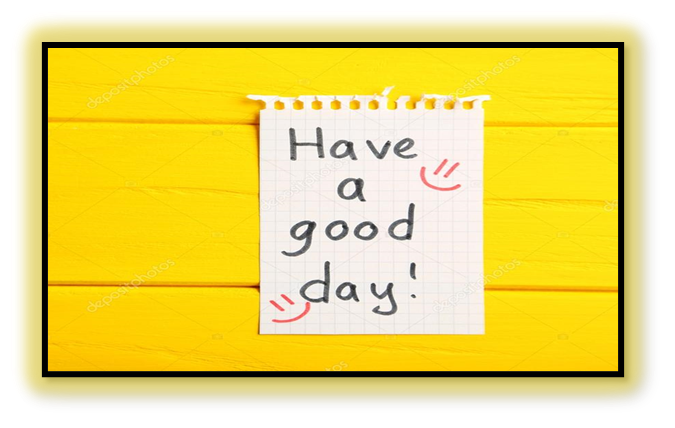 Have
a
good
day!
depositphotos
depositphotos
depositphotos
depositphotos